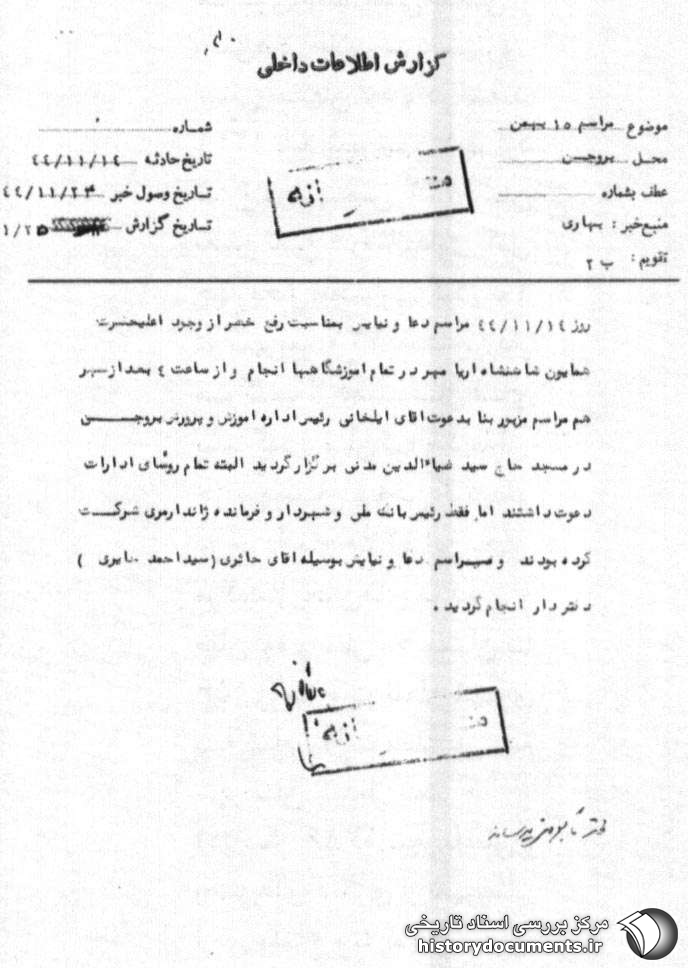 گزارش اطلاعات داخلی
موضوع مراسم ۱۵ بهمن
شماره
محل بروجن
تاریخ حادثه ۴۴/۱۱/۱۴
عطف بشماره
تاریخ وصول خبر ۴۴/۱۱/۲۳
منبع خبر : بهاری
تاریخ گزارش ۱/۲۵
تقویم : ب ۲
روز ۴۴/۱۱/۱۴ مراسم دعا و نیایش بمناسبت رفع خطر از وجود اعلیحضرت
همایون شاهنشاه اریا مهر در تمام اموزشگاهها انجام و از ساعت ۴ بعد از ظهر
هم مراسم مزبور بنا بدعوت اقای ایلخانی رئیس اداره اموزش و پرورش بروجن
در مسجد حاج سید ضیاءالدین مدنی برگزار گردید البته تمام روسای ادارات
دعوت داشتند اما فقط رئیس بانک ملی و شهردار و فرمانده ژاندارمری شرکت
کرده بودند و مراسم دعا و نیایش بوسیله اقای حائری (سید احمد)
دفتر دار انجام گردید .
مرکز بررسی اسناد تاریخی
historydocuments.ir